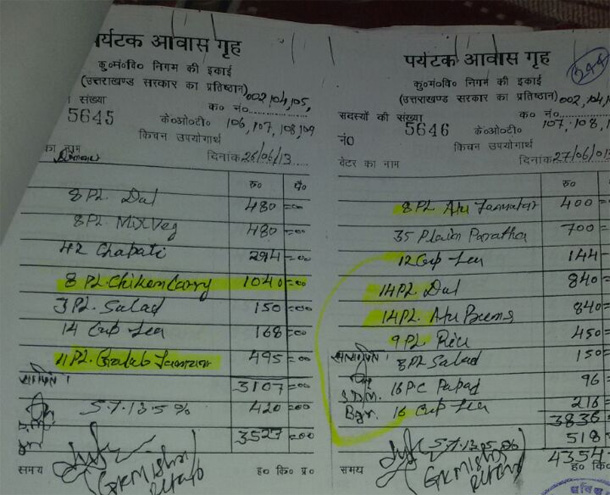 पर्यटक आवास गृह
कु०मं०वि० निगम की इकाई
(उत्तराखण्ड सरकार का प्रतिष्ठान)
संख्या क० नं० 002, 104, 105,
5645 के०ओ०टी० 106, 107, 108, 109
किचन उपयोगार्थ
का नाम दिनांक 26/06/13
रु० पै०
8 PL. Dal 480 = 00
8 PL. Mix Veg 480 = 00
42 Chapati 294 = 00
8 PL. Chiken Carry 1040 = 00
3 PL. Salad 150 = 00
14 Cup Tea 168 = 00
11 PL. Gulab Jamun 495 = 00
3107 = 00
S.T. 13.5 % 420 = 00
3527 = 00
समय ह० कि० प्र०
पर्यटक आवास गृह
कु०मं०वि० निगम की इकाई
(उत्तराखण्ड सरकार का प्रतिष्ठान)
सदस्यों की संख्या क० नं० 002, 104
नं० 5646 के०ओ०टी० 107, 108,
किचन उपयोगार्थ
वेटर का नाम दिनांक 27/06/
रु०
8 PL. Alu 400 =
35 Plain Paratha 700 =
12 Cup Tea 144 =
14 PL. Dal 840 =
14 PL. Alu Beens 840 =
9 PL. Rice 450 =
3 PL Salad 150
16 PC Papad 96 =
16 Cup Tea 216 =
3836 =
S.T. 13.5 % 518
4354
समय ह० कि०